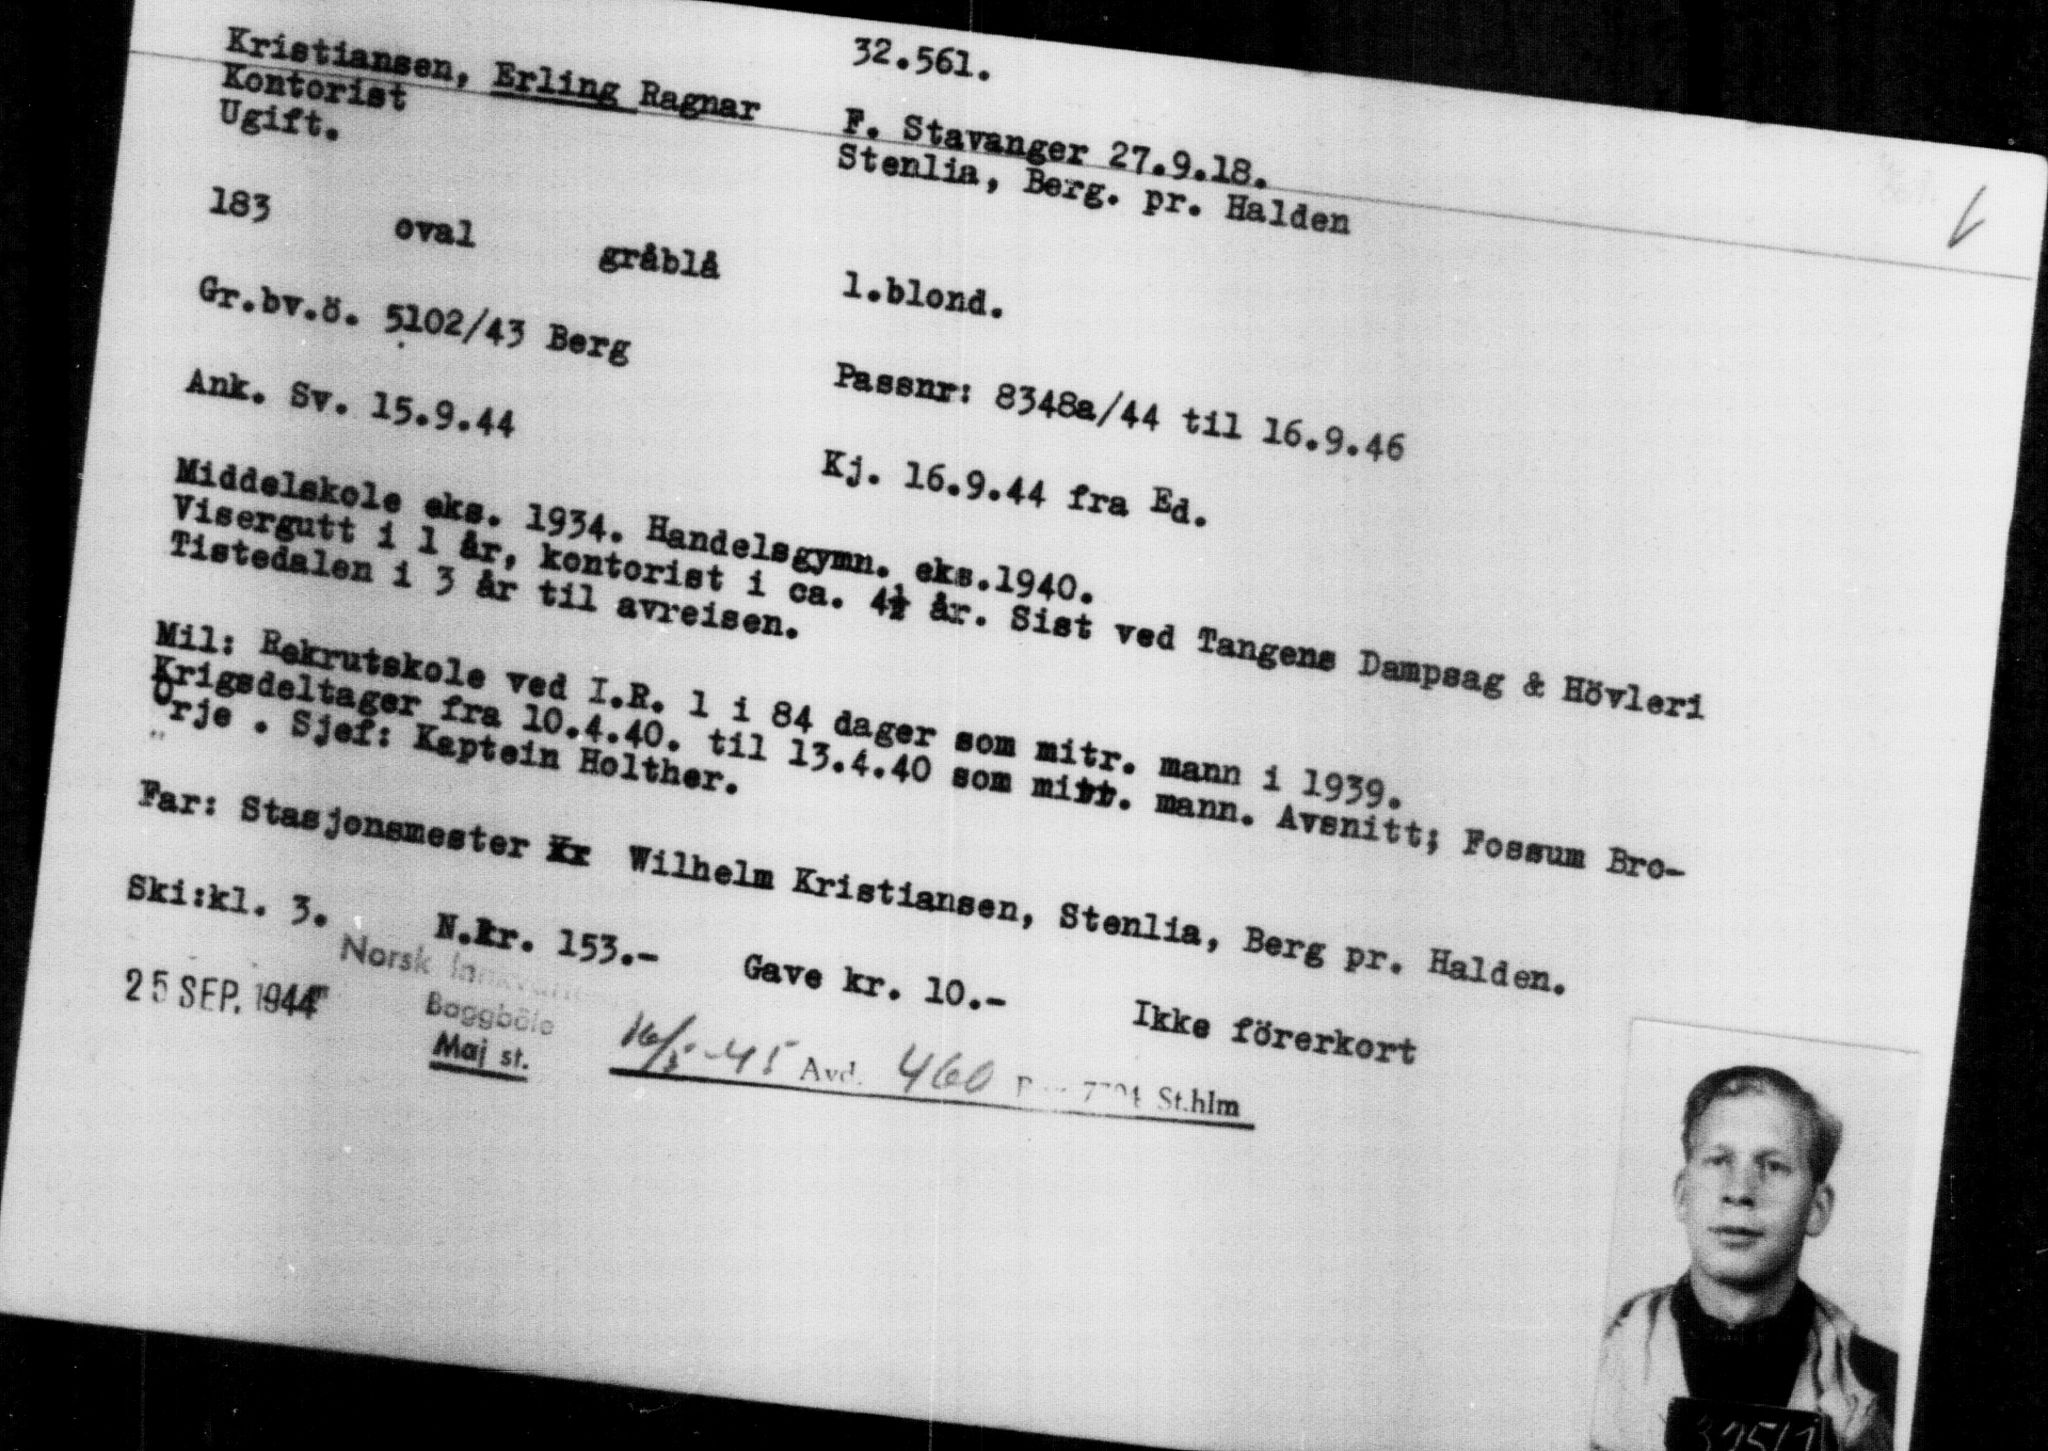 32.561.
Kristiansen, Erling Ragnar F. Stavanger 27.9.18.
Kontorist Stenlia, Berg. pr. Halden
Ugift.
183 oval gråblå l.blond.
Gr.bv.ö. 5102/43 Berg Passnr: 8348a/44 til 16.9.46
Ank. Sv. 15.9.44 Kj. 16.9.44 fra Ed.
Middelskole eks. 1934. Handelsgymn. eks.1940.
Visergutt i 1 år, kontorist i ca. 4½ år. Sist ved Tangens Dampsag & Hövleri
Tistedalen i 3 år til avreisen.
Mil: Rekrutskole ved I.R. 1 i 84 dager som mitr. mann i 1939.
Krigsdeltager fra 10.4.40. til 13.4.40 som mitr. mann. Avsnitt; Fossum Bro-
Örje . Sjef: Kaptein Holther.
Far: Stasjonsmester Wilhelm Kristiansen, Stenlia, Berg pr. Halden.
Ski:kl. 3. N.kr. 153.- Gave kr. 10.- Ikke förerkort
Norsk
25 SEP. 1944 Baggböle
Maj st. 16/5-45 Avd. 460 St.hlm